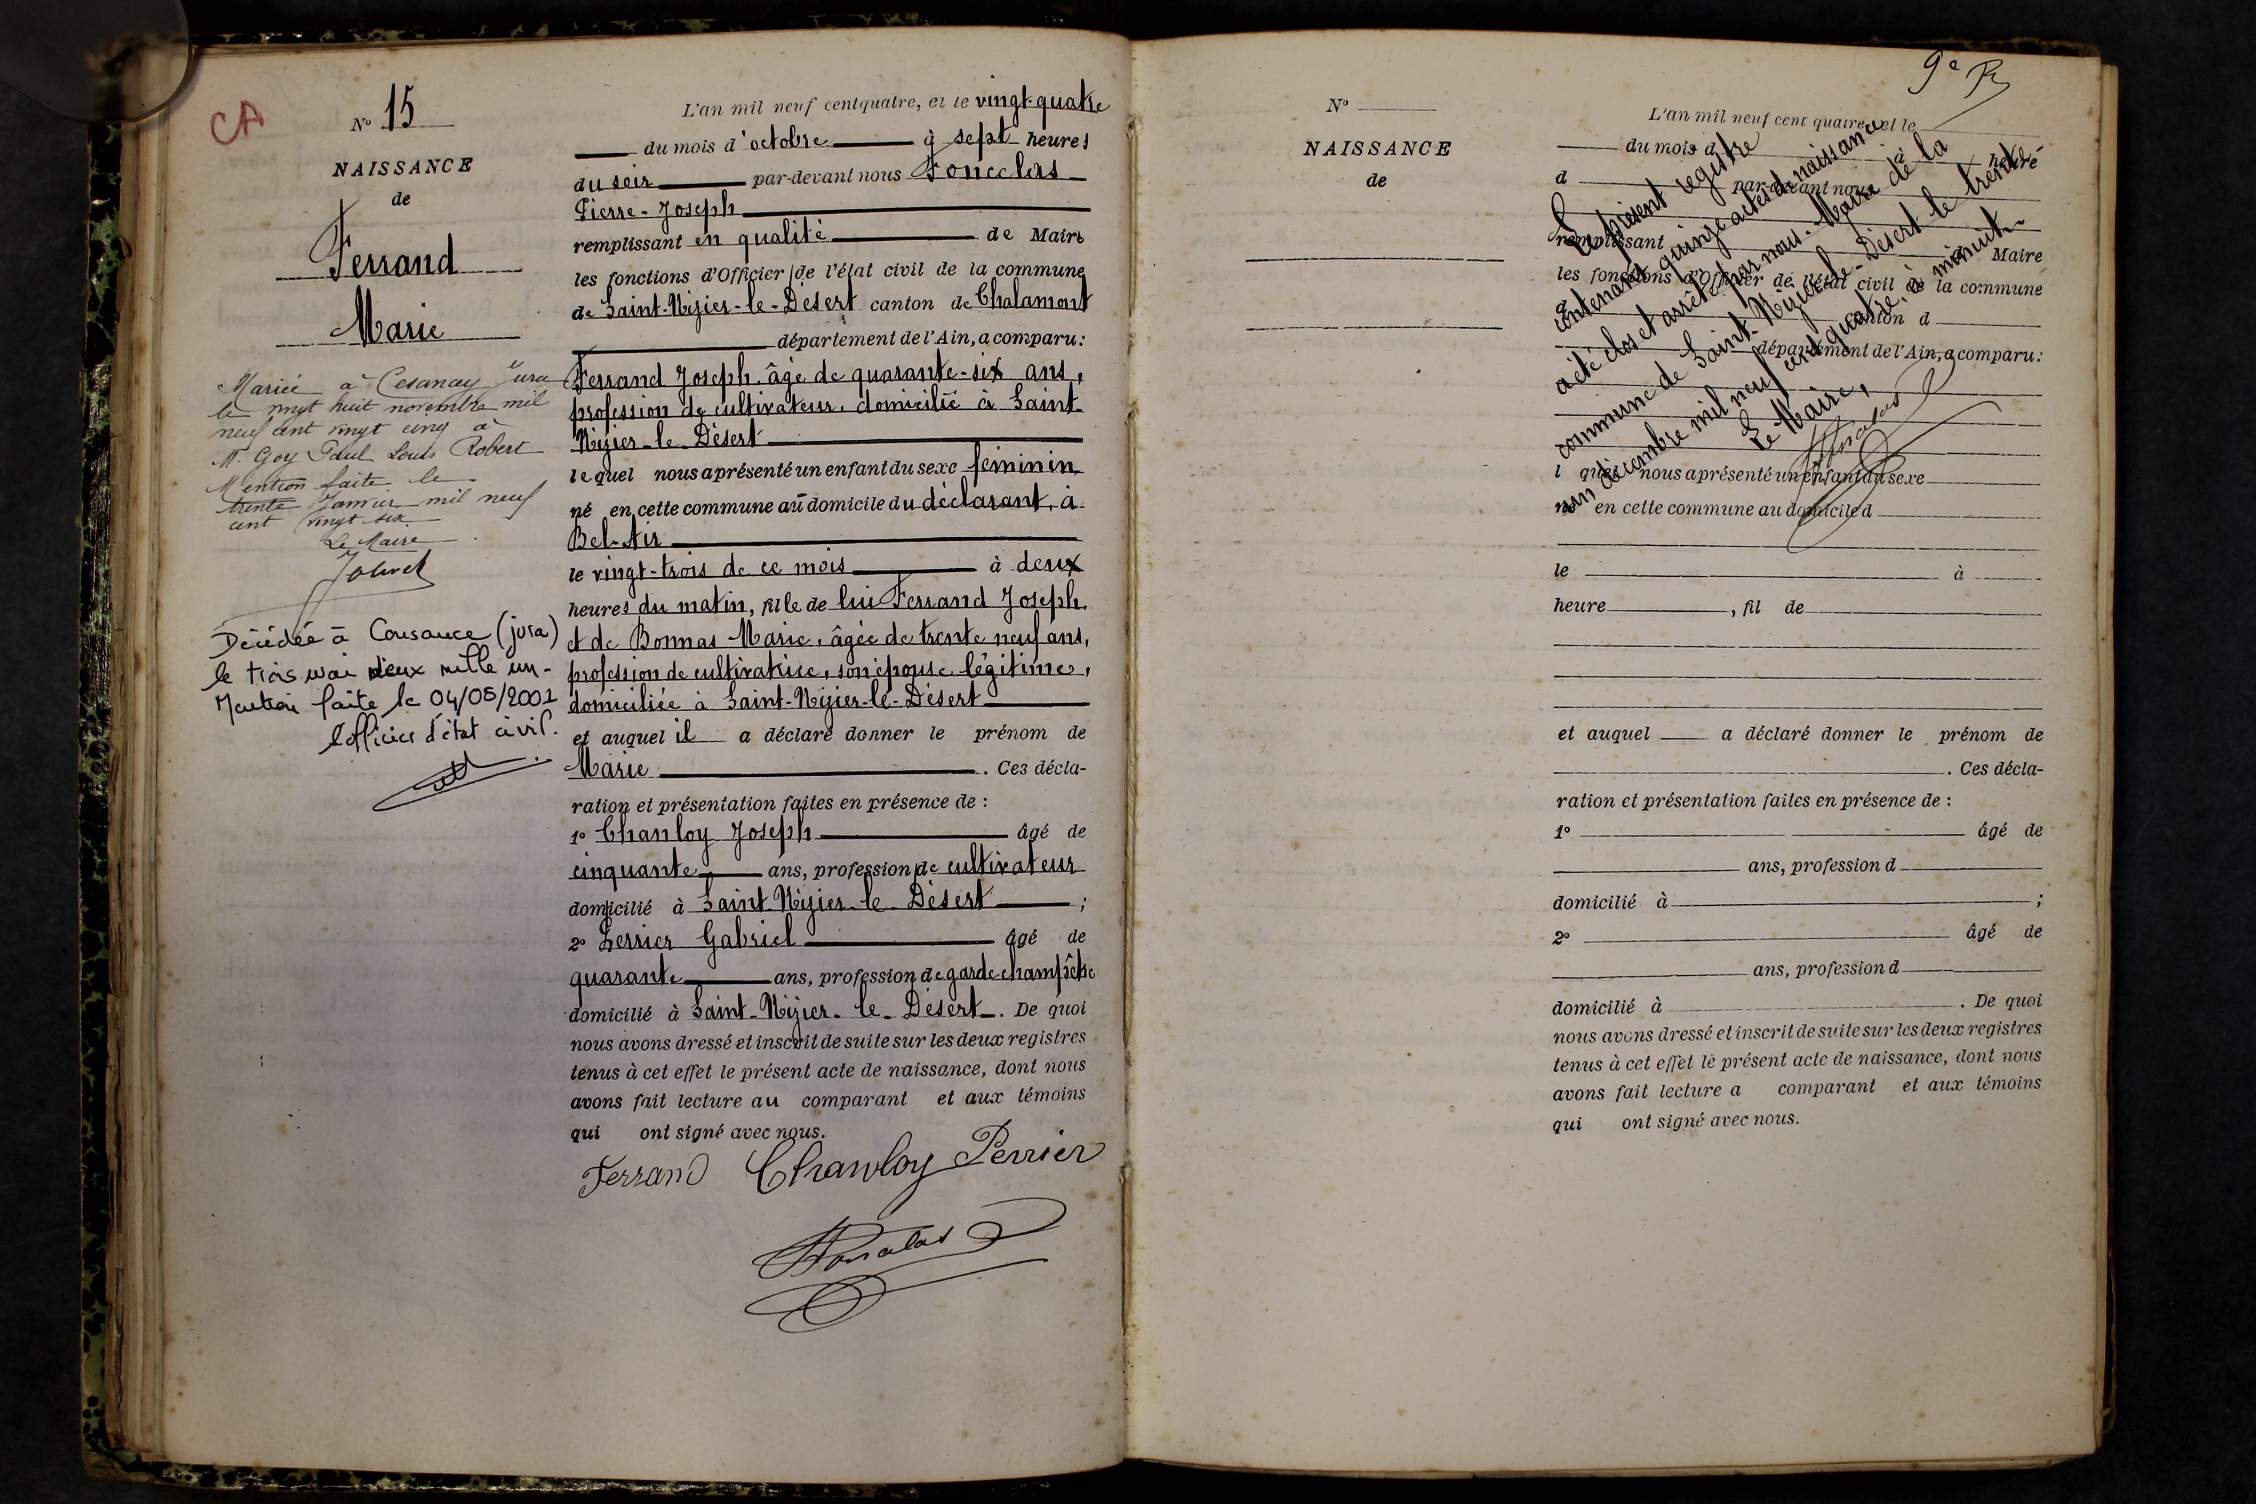 CA
N° 15
NAISSANCE
de
Ferrand
Marie
Mariée à Cesancey Jura
le vingt huit novembre mil
neuf cent vingt cinq à
M. Goy Paul Louis Robert
Mention faite le
trente Janvier mil neuf
cent vingt six.
Le Maire
Décédée à Cousance (jura)
le trois mai deux mille un -
Mention faite le 04/05/2001
l'officier d'état civil.
L'an mil neuf cent quatre, et le vingt-quatre
du mois d'octobre à sept heures
du soir par-devant nous
Pierre-Joseph
remplissant en qualité de Maire
les fonctions d'Officier de l'état civil de la commune
de Saint-Nizier-le-Désert canton de Chalamont
département de l'Ain, a comparu:
Ferrand Joseph, âgé de quarante-six ans,
profession de cultivateur, domicilié à Saint-
Nizier-le-Désert
lequel nous a présenté un enfant du sexe féminin
né en cette commune au domicile du déclarant, à
Bel-Air
le vingt-trois de ce mois à deux
heures du matin, fille de lui Ferrand Joseph,
et de Bonnas Marie, âgée de trente neuf ans,
profession de cultivatrice, son épouse légitime,
domiciliée à Saint-Nizier-le-Désert
et auquel il a déclaré donner le prénom de
Marie. Ces décla-
ration et présentation faites en présence de :
1° Chanloy Joseph âgé de
cinquante ans, profession de cultivateur
domicilié à Saint Nizier-le Désert ;
2° Perrier Gabriel âgé de
quarante ans, profession de garde champêtre
domicilié à Saint-Nizier-le-Désert. De quoi
nous avons dressé et inscrit de suite sur les deux registres
tenus à cet effet le présent acte de naissance, dont nous
avons fait lecture au comparant et aux témoins
qui ont signé avec nous.
Ferrand Chanloy Perrier
9e
N°
NAISSANCE
de
L'an mil neuf cent quatre, et le
du mois d à heure
d par-devant nous
remplissant de Maire
les fonctions d'Officier de l'état civil de la commune
d canton d
département de l'Ain, a comparu:
l quel nous a présenté un enfant du sexe
né en cette commune au domicile d
le à
heure , fil de
et auquel a déclaré donner le prénom de
. Ces décla-
ration et présentation faites en présence de :
1° âgé de
ans, profession d
domicilié à ;
2° âgé de
ans, profession d
domicilié à . De quoi
nous avons dressé et inscrit de suite sur les deux registres
tenus à cet effet le présent acte de naissance, dont nous
avons fait lecture a comparant et aux témoins
qui ont signé avec nous.
Le présent registre
contenant quinze actes de naissance
a été clos et arrêté par nous, Maire de la
commune de Saint-Nizier-le-Désert le trente
un décembre mil neuf cent quatre, à minuit
Le Maire,